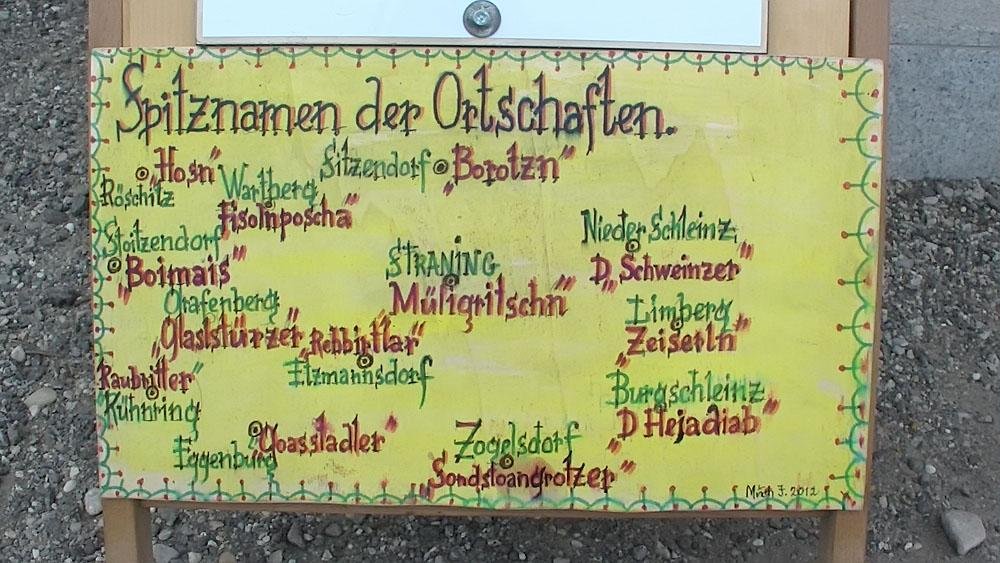 Spitznamen der Ortschaften.
„Hosn"
Röschitz
Wartberg
Fisolnposcha"
Sitzendorf
„Borotzn"
Stoitzendorf
„Boimais"
STRANING
„Müligritschn"
Nieder Schleinz
„D Schweinzer"
Grafenberg
„Glaslstürzer"
Limberg
„Zeiserln"
„Rebbirtlar"
Etzmannsdorf
Raubritter"
Kühnring
Burgschleinz
„D Hejadiab"
Eggenburg
„Goassladler"
Zogelsdorf
„Sondstoangrotzer"
2012